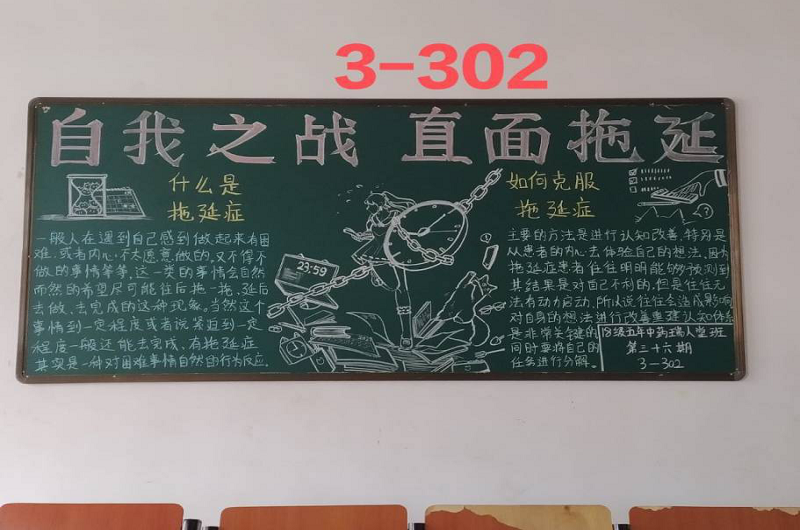 3-302
自我之战 直面拖延
什么是
拖延症
一般人在遇到自己感到做起来有困
难,或者内心不太愿意做的,又不得不
做的事情等等,这一类的事情会自然
而然的希望尽可能往后拖一拖,延后
去做,去完成的这种现象。当然这个
事情到一定程度或者说紧迫到一定
程度一般还能去完成。有拖延症
其实是一种对困难事情自然的行为反应.
23:59
如何克服
拖延症
主要的方法是进行认知改善,特别是
从患者的内心去体验自己的想法,因为
拖延症患者往往明明能够预测到
其结果是对自己不利的,但是往往无
法有动力启动,所以说往往会造成影响
对自身的想法进行改善重建认知体系
是非常关键的
同时要将自己的
任务进行分解。
18级五年中药瑞人堂班
第三十六期
3-302